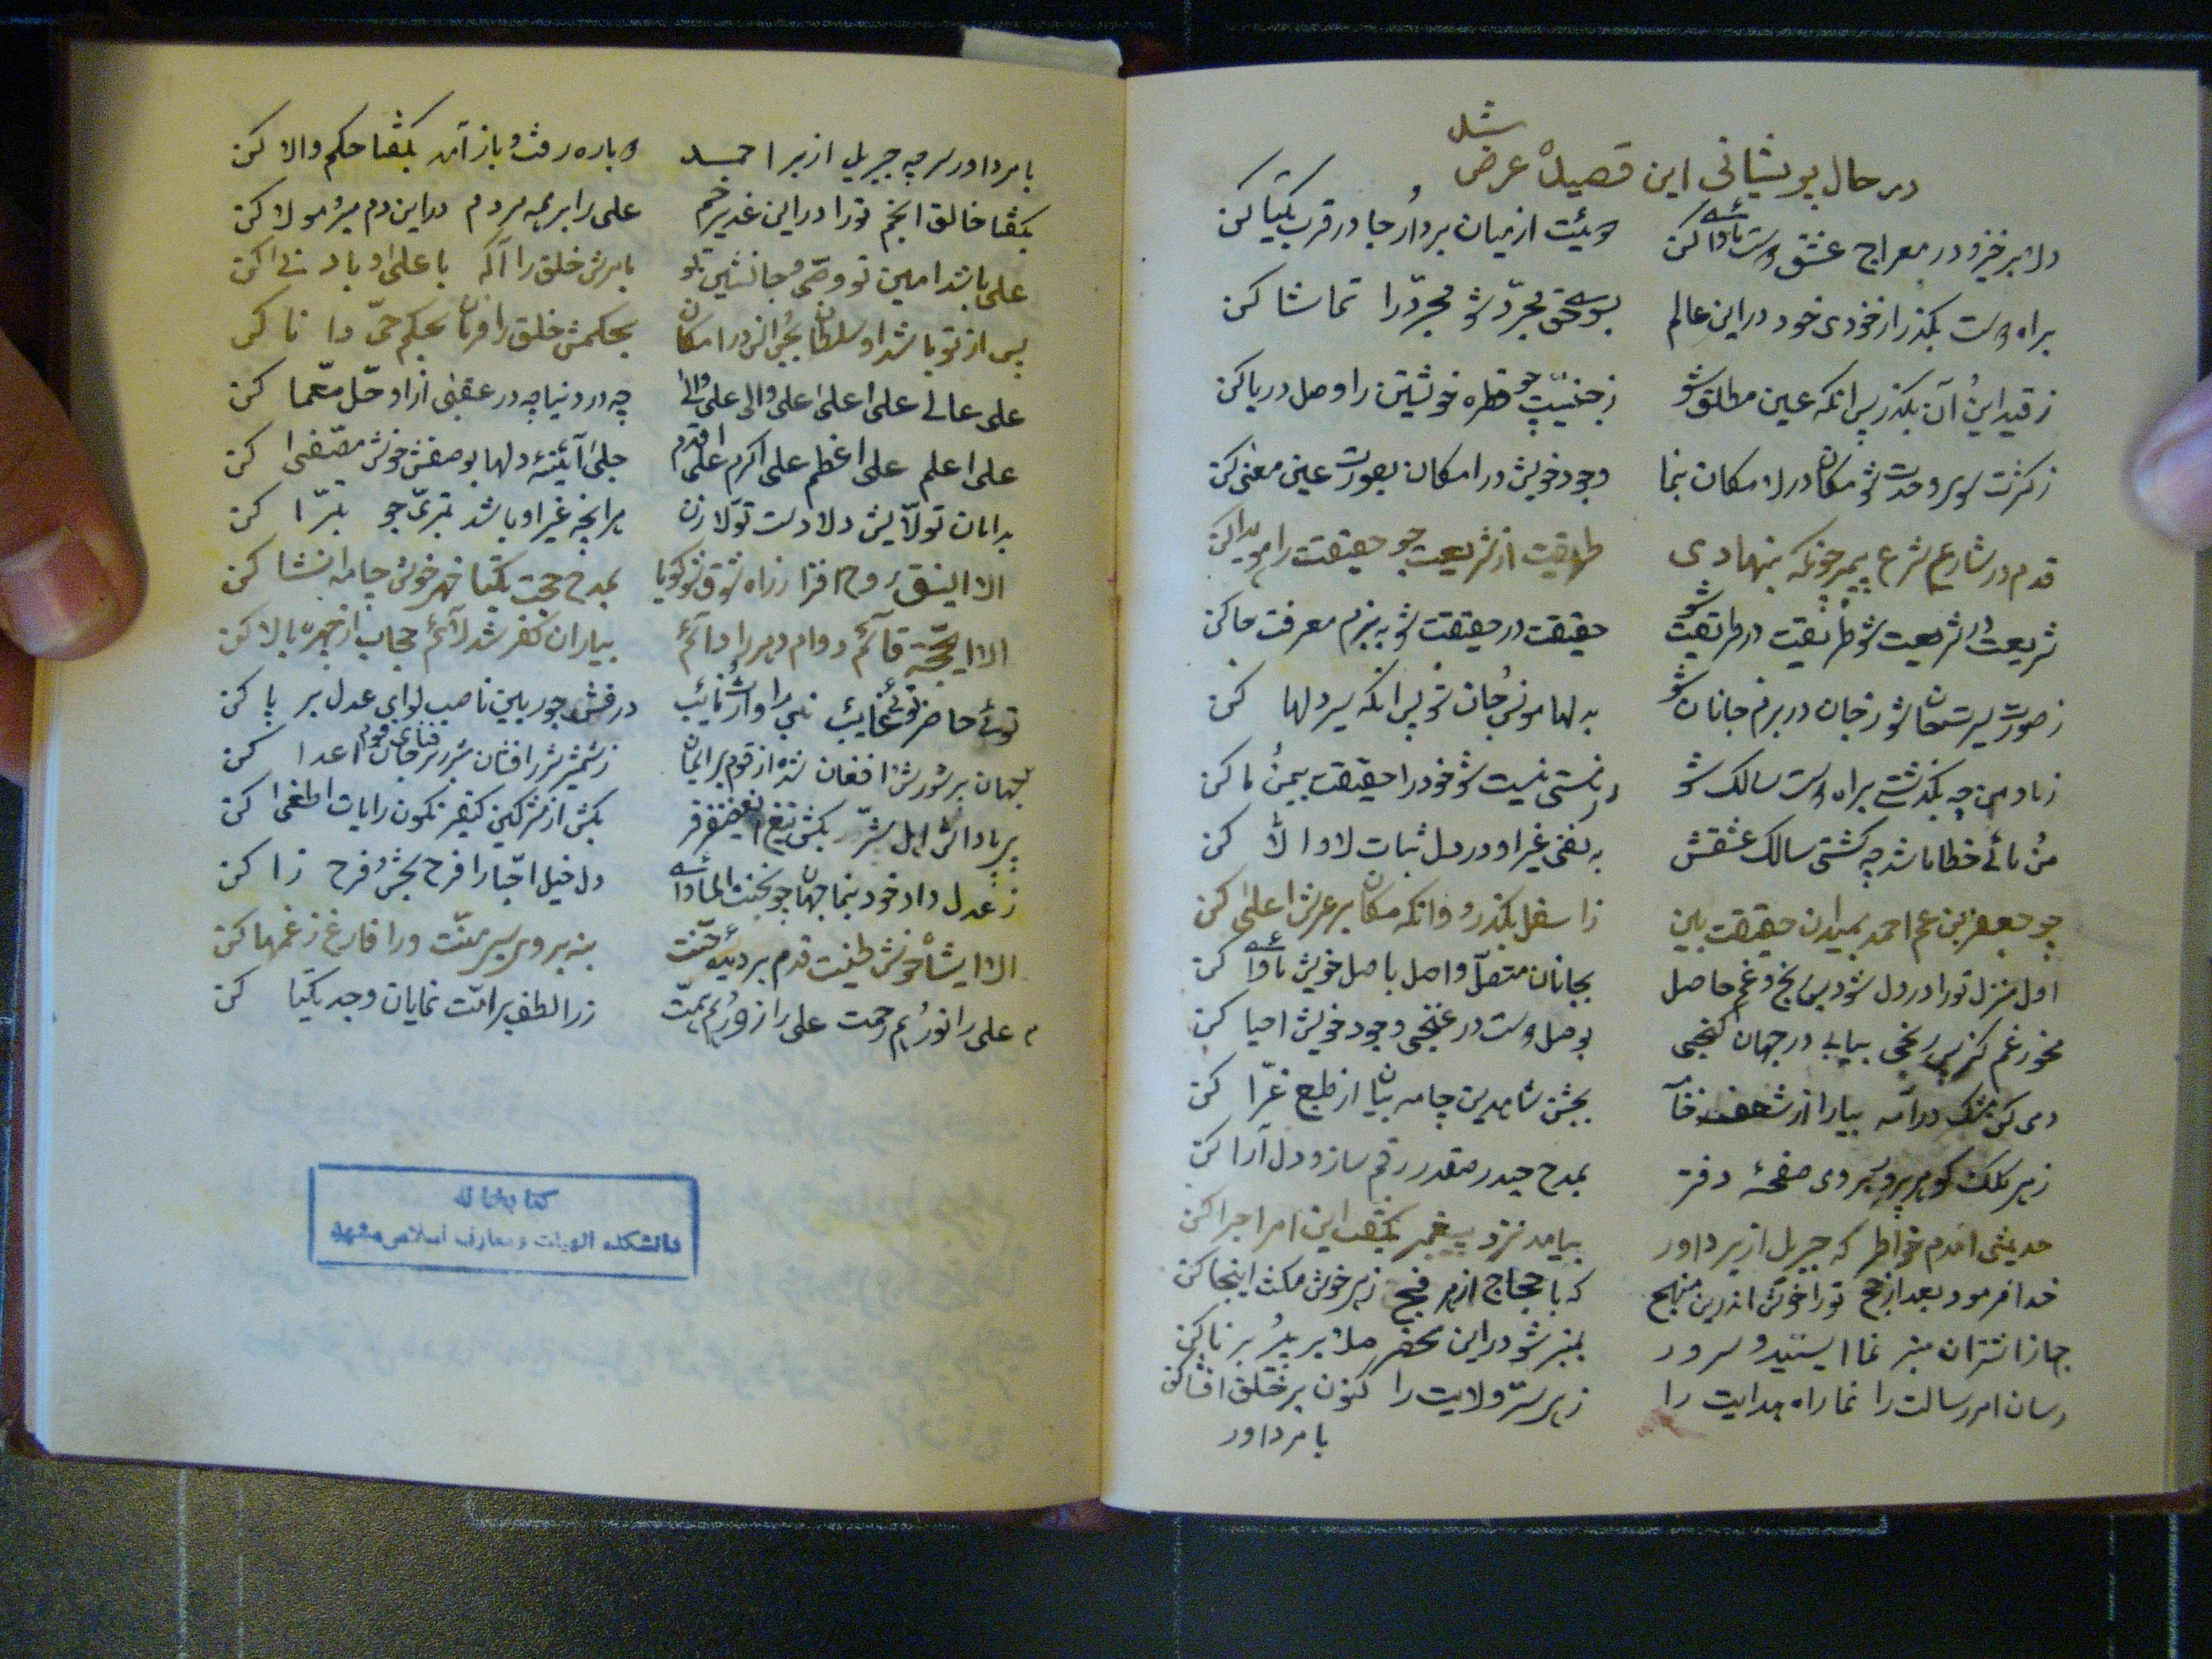 در حال پریشانی این قصیده عرض شد
دلا برخیز و در معراج عشق دوست مأوا کن
دوئیت از میان بردار و جا در قرب یکتا کن
براه دوست بگذر از خودی خود در این عالم
بسوی حق مجرّد شو مجرّد را تماشا کن
ز قید این و آن بگذر پس آنگه عین مطلق شو
ز جنبیت چو قطره خویشتن را وصل دریا کن
ز کثرت سوی وحدت شو مکان در لامکان بنما
وجود خویش در امکان بصورت عین معنی کن
قدم در شارع شرع پیمبر چونکه بنهادی
طریقت از شریعت جو حقیقت را هویدا کن
شریعت در شریعت شو طریقت در طریقت شو
حقیقت در حقیقت شو به بزم معرفت جا کن
ز صورت سیرت جان شو ز جان در بزم جانان شو
به لها مونس جان شو پس آنگه سیر دلها کن
ز ما و من چه بگذشتی براه دوست سالک شو
ز نستی نیست شو خود را حقیقت بی من و ما کن
من و مائی خطا باشد چه گشتی سالک عشقش
به نفی غیر او در دل ثبات لا و الّا کن
چو جعفر بن عم احمد بمیدان حقیقت بین
ز اسفل بگذر و وانگه مکان بر عرش اعلی کن
اول منزل تو را در دل شود بس رنج و غم حاصل
بجانان متصل و اصل باصل خویش مأوا کن
مخور غم کز پس رنجی بیابی در جهان گنجی
بوصل دوست در غنجی وجود خویش احیا کن
دمی کن مشک در آمه بیارا از شعف نامه
بجشن شاه دین چامه بیان از طبع غرّا کن
ز هر کلک گوهر پرور بروی صفحهٔ دفتر
بمدح حیدر صفدر رقم ساز و دل آرا کن
حدیثی آمدم خواطر که جبریل از بر داور
بیامد نزد پیغمبر بگفت این امر اجرا کن
خدا فرمود بعد از حج تو را خوش اندرین منهج
که با حجاج از هر فج ز هر خوش مکث اینجا کن
جهاز اشتران منبر نما ایستید و سرور
بمنبر شو در این محضر صلا بر پیر و برنا کن
رسان امر رسالت را نما راه هدایت را
ز هر سرّ ولایت را کنون بر خلق افشا کن
بامر داور
بامر داور سر چه جبریل از بر احمد
دوباره رفت و باز آمد بگفتا حکم والا کن
بگفتا خالق انجم تو را در این غدیر خم
علی را بر همه مردم در این دم میر و مولا کن
علی باشد امین تو وصی و جانشین تو
بامرش خلق را آگه با علی و با ادنی کن
پس از تو باشد او سلطان بجن و انس در امکان
بحکمش خلق را فرمان بحکم حیّ دانا کن
علی عالی علی اعلی علی والی علی والی
چه در دنیا چه در عقبی از او حلّ معمّا کن
علی اعلم علی اعظم علی اکرم علی اقدم
جلی آئینهٔ دلها بوصفش خوش مصفّی کن
بدامان تولّایش دلا دست تولّا زن
هر آنچه غیر او باشد تبرّی جو تبرّا کن
الا ای نطق روح افزا ز راه شوق شو گویا
بمدح حجت یکتا ظهر خوش چامه انشا کن
الا ای حجّة قائم دوام دهر را دائم
بیاران کفر شد لائم حجاب از چهره بالا کن
توئی حاضر توئی غائب نبی را وارث و نائب
درفش جور بین ناصب لوای عدل بر پا کن
جهان پر شور و شر افغان شده از قوم بر ایمان
ز شمشیر شرر افشان شرر بر جان اعدا کن
فنای قوم
پی پاداش اهل شرّ بکش تیغ ای غضنفر فر
بکش از مشرکین کیفر نگون رایات اطغی کن
ز عدل و داد خود بنما جهان چو جنت المأوا
دل خیل احبّا را فرح بخش و فرح زا کن
الا ای شاه خوش طینت قدم بر دیدهٔ منّت
بنه بر وی سر منّت ورا فارغ ز غمها کن
علی را نور هم رحمت علی را زور هم همّت
ز را لطف بر امّت نمایان وجه یکتا کن
کتابخانه
دانشکده الهیات و معارف اسلامی مشهد